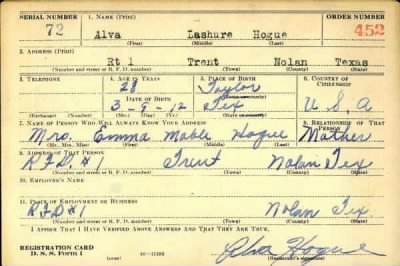 SERIAL NUMBER 1. NAME (Print) ORDER NUMBER
72 Alva Lashure Hogue 452
(First) (Middle) (Last)
2. ADDRESS (Print)
Rt 1 Trent Nolan Texas
(Number and street or R. F. D. number) (Town) (County) (State)
3. TELEPHONE 4. AGE IN YEARS 5. PLACE OF BIRTH 6. COUNTRY OF CITIZENSHIP
28 Taylor
DATE OF BIRTH (Town or county)
3-9-12 Tex U S A
(Exchange) (Number) (Mo.) (Day) (Yr.) (State or country)
7. NAME OF PERSON WHO WILL ALWAYS KNOW YOUR ADDRESS 8. RELATIONSHIP OF THAT PERSON
Mrs. Emma Mable Hogue Mother
(Mr., Mrs., Miss) (First) (Middle) (Last)
9. ADDRESS OF THAT PERSON
RFD #1 Trent Nolan Tex
(Number and street or R. F. D. number) (Town) (County) (State)
10. EMPLOYER'S NAME
11. PLACE OF EMPLOYMENT OR BUSINESS
RFD #1 Nolan Tex
(Number and street or R. F. D. number) (Town) (County) (State)
I AFFIRM THAT I HAVE VERIFIED ABOVE ANSWERS AND THAT THEY ARE TRUE.
REGISTRATION CARD
D. S. S. Form 1 Alva Hogue
(Registrant's signature)